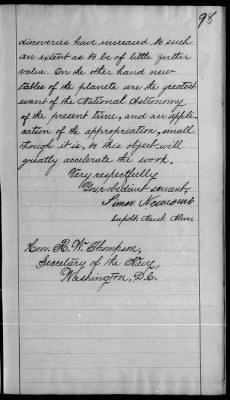 98
discoveries have increased to such
an extent as to be of little further
value. On the other hand new
tables of the planets are the greatest
want of the National Astronomy
of the present time, and an appli-
cation of the appropriation, small
though it is, to this object will
greatly accelerate the work.
Very respectfully
Your obedient servant,
Simon Newcomb
Supdt. Naut. Alm.
Hon. R. W. Thompson,
Secretary of the Navy,
Washington, D.C.